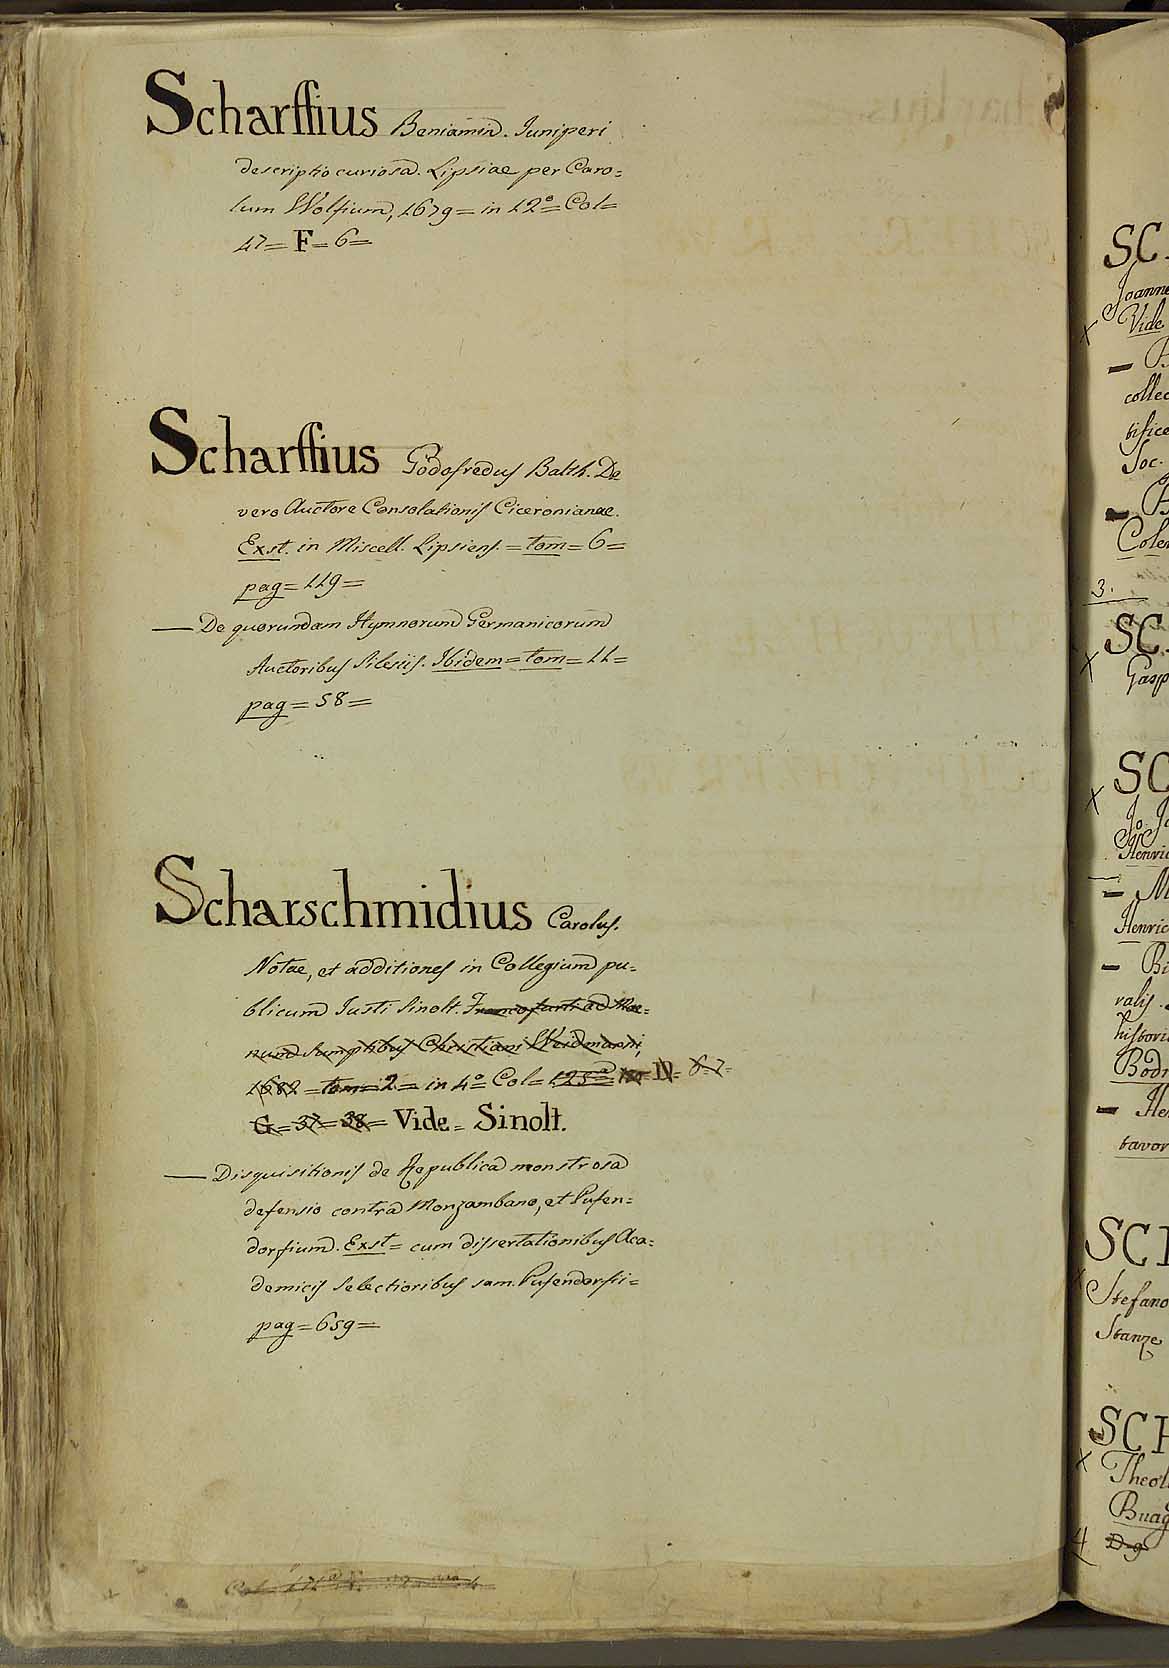 Scharffius Beniamin. Iuniperi
descriptio curiosa. Lipsiae per Caro=
lum Wolfium, 1679= in 12°= Col=
47= F= 6=
Scharffius Godofredus Balth. De
vero Auctore Consolationis Ciceronianae.
Exst. in Miscell. Lipsiens. = tom= 6=
pag= 119=
— De quorundam Hymnorum Germanicorum
Auctoribus Silesiis. Ibidem= tom= 11=
pag= 58=
Scharschmidius Carolus.
Notae, et additiones in Collegium pu=
blicum Iusti Sinolt. Francofurti ad Moe=
num sumptibus Christiani Weidmanni,
1682 = tom= 2= in 4° Col= 125= D= 6=7=
G= 37= 38= Vide= Sinolt.
— Disquisitionis de Republica monstrosa
defensio contra Monzambano, et Pufen=
dorfium. Exst= cum dissertationibus Aca=
demicis selectioribus sam. Pufendorfii=
pag= 659=
SC
Joanne
Vide
collec
tifice
Soc.
Coler
3.
SC
Gasp
SC
Jo. Jo
Henric
— M
Henric
— Bi
valis.
historic
Bodr
— He
tavor
SCH
Stefano
Stanze
SCH
Theol
Buag
4 D 9